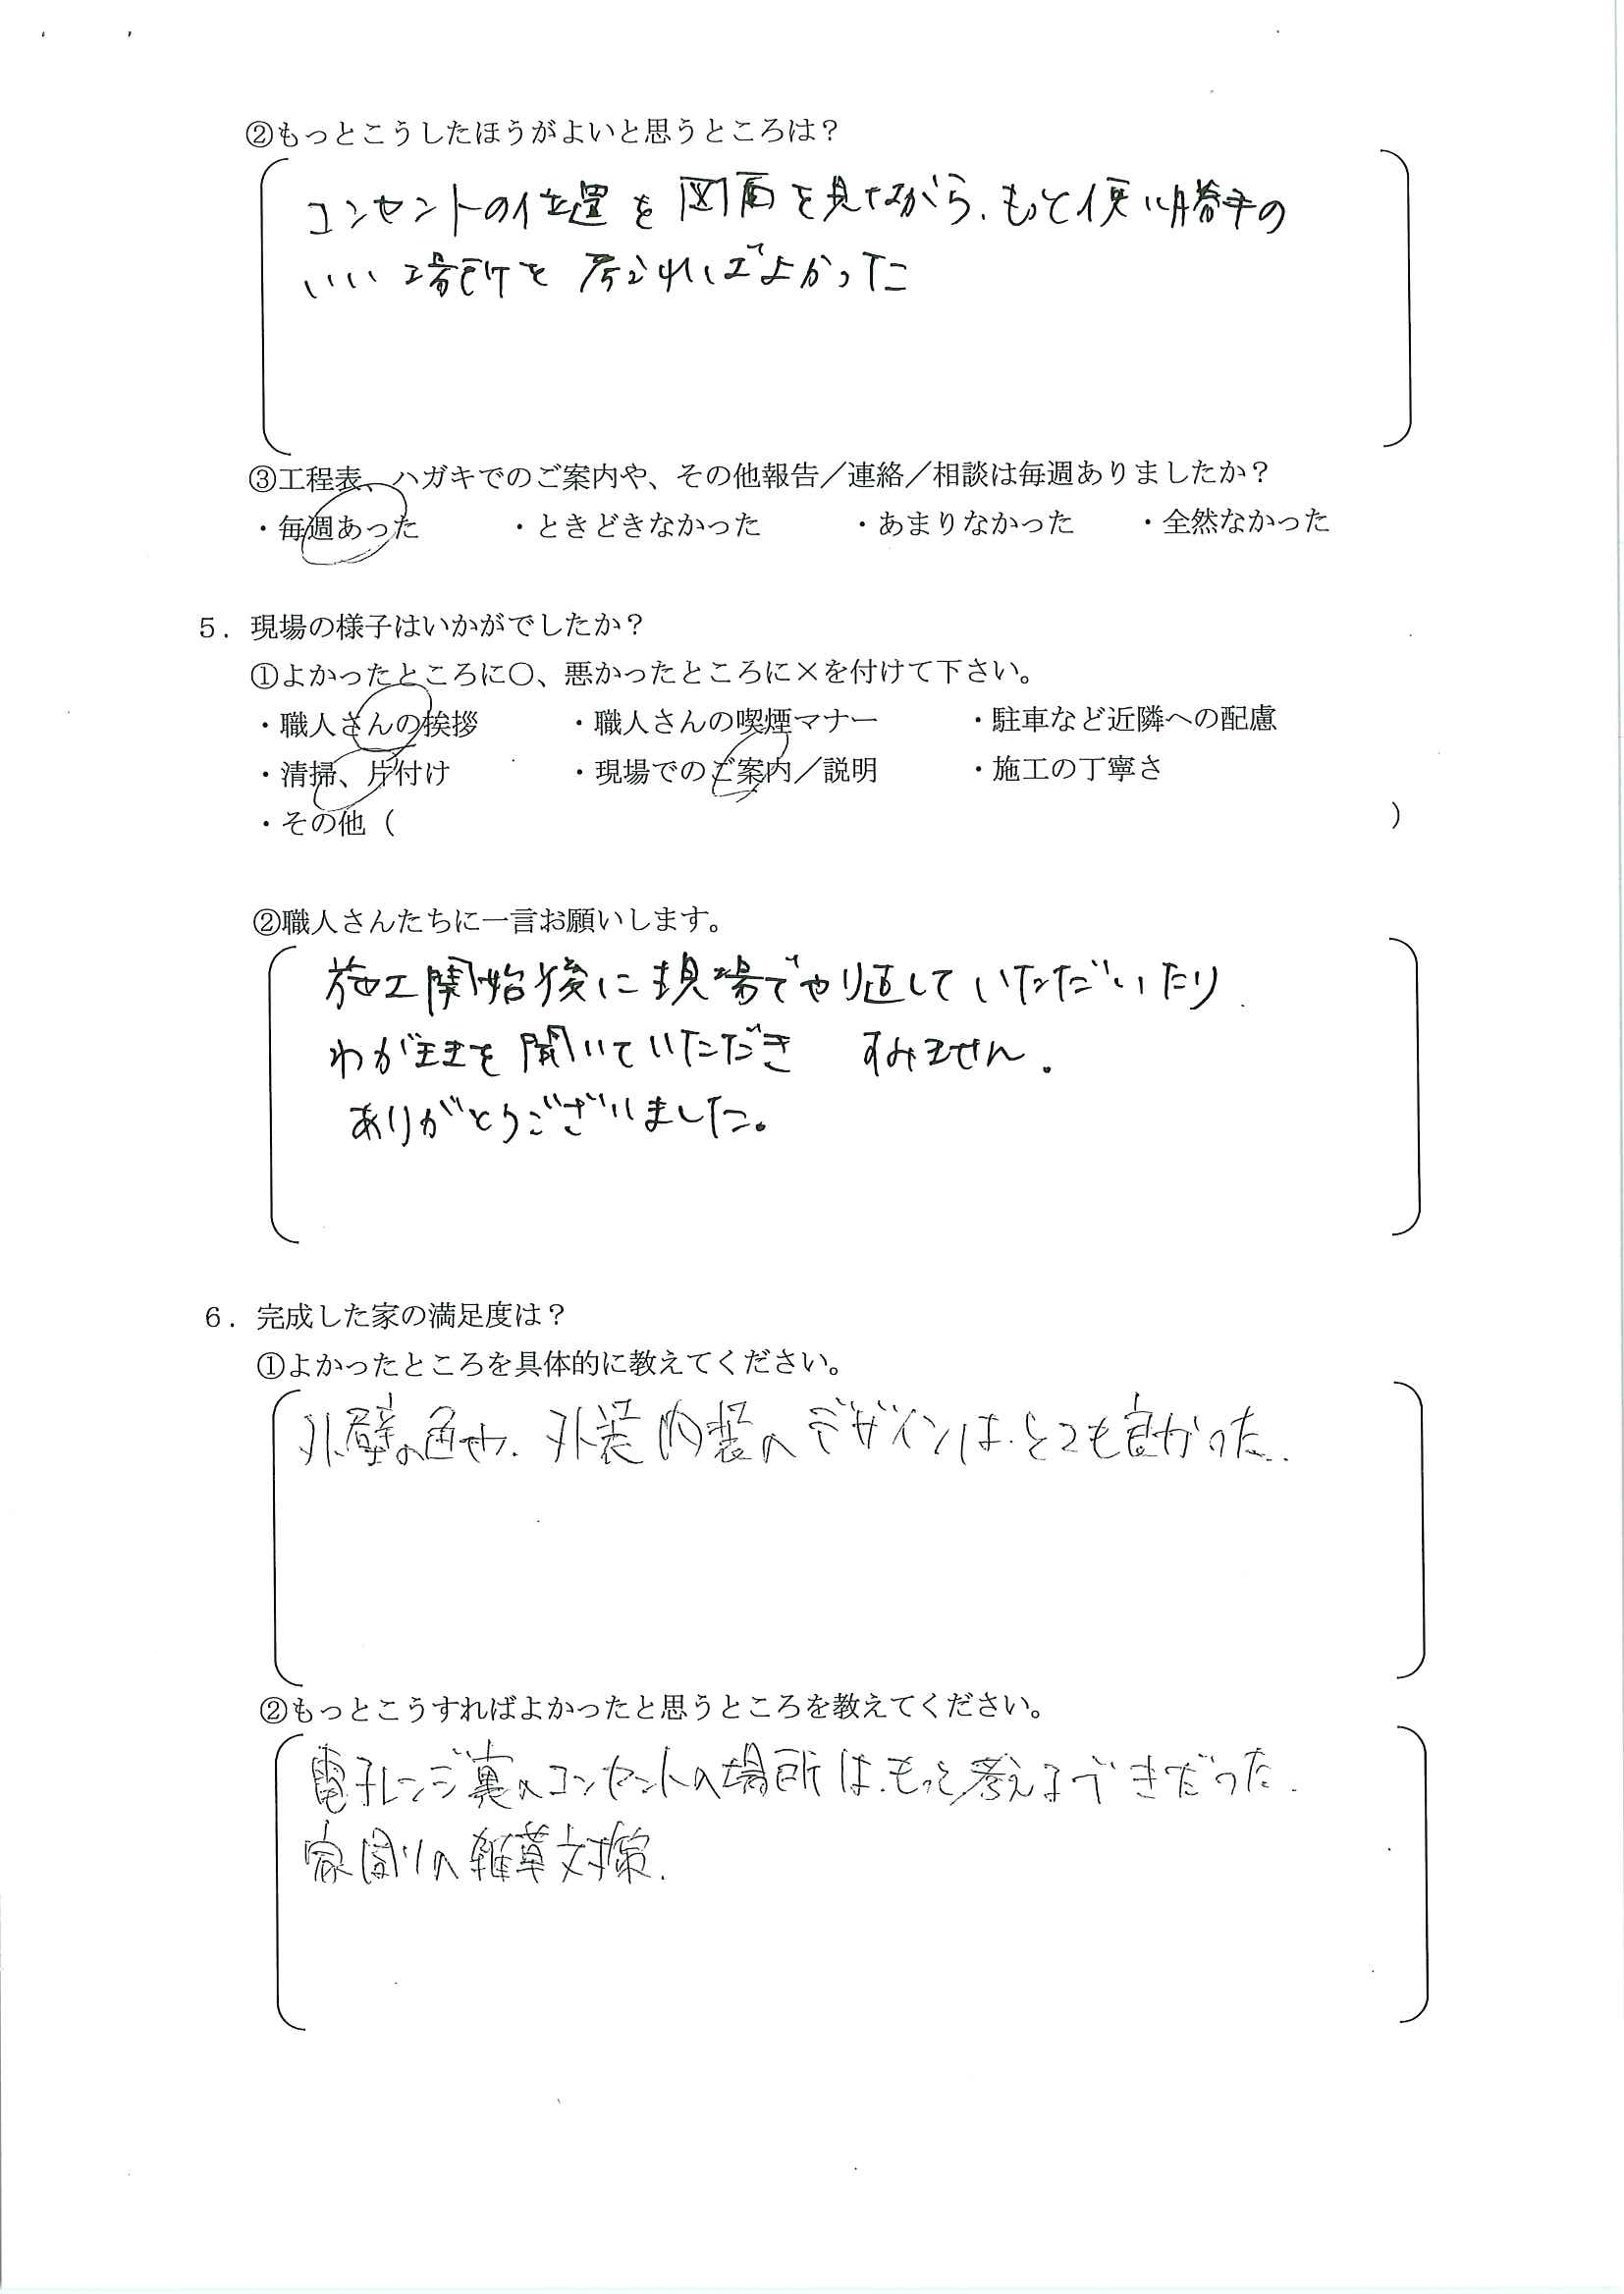 ②もっとこうしたほうがよいと思うところは？
コンセントの位置を図面を見ながら、もっと使い勝手の
いい場所を考えればよかった
③工程表、ハガキでのご案内や、その他報告／連絡／相談は毎週ありましたか？
・毎週あった ・ときどきなかった ・あまりなかった ・全然なかった
５．現場の様子はいかがでしたか？
①よかったところに〇、悪かったところに×を付けて下さい。
・職人さんの挨拶 ・職人さんの喫煙マナー ・駐車など近隣への配慮
・清掃、片付け ・現場でのご案内／説明 ・施工の丁寧さ
・その他（ ）
②職人さんたちに一言お願いします。
施工開始後に現場でやり直していただいたり
わがままを聞いていただき すみません。
ありがとうございました。
６．完成した家の満足度は？
①よかったところを具体的に教えてください。
外壁の色や、外装内装のデザインは、とても良かった。
②もっとこうすればよかったと思うところを教えてください。
電子レンジ裏のコンセントの場所は、もっと考えるべきだった。
家周りの雑草対策.